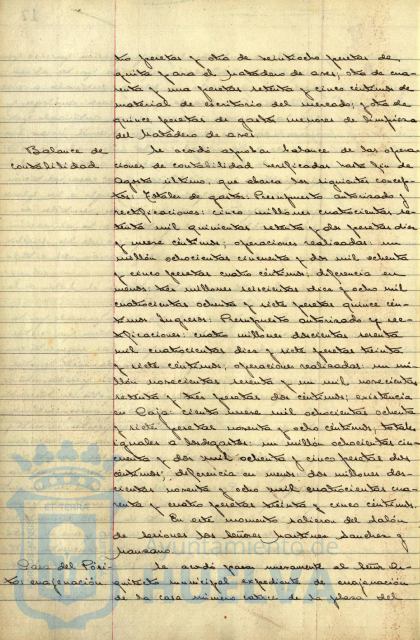 tro pesetas y otra de veintiocho pesetas de
guita para el Matadero de aves; otra de cua-
renta y una pesetas setenta y cinco céntimos de
material de escritorio del mercado; y otra de
quince pesetas de gastos menores de limpieza
del Matadero de aves.
Balance de
contabilidad
Se acordó aprobar balance de las opera-
ciones de contabilidad verificadas hasta fin de
Agosto último, que abarca los siguientes concep-
tos: Totales de gastos: Presupuesto autorizado y
rectificaciones: cinco millones cuatrocientas se-
tenta mil quinientas setenta y dos pesetas diez
y nueve céntimos; operaciones realizadas: un
millón ochocientas cincuenta y dos mil ochenta
y cinco pesetas cuatro céntimos; diferencia en
menos: tres millones seiscientas diez y ocho mil
cuatrocientas ochenta y siete pesetas quince cén-
timos. Ingresos: Presupuesto autorizado y rec-
tificaciones: cuatro millones doscientas sesenta
mil cuatrocientas diez y siete pesetas treinta
y siete céntimos; operaciones realizadas: un mi-
llón novecientas sesenta y un mil novecientas
setenta y tres pesetas dos céntimos; existencia
en Caja: ciento nueve mil ochocientas ochenta
y siete pesetas noventa y ocho céntimos; totales
iguales a los de gastos: un millón ochocientas cin-
cuenta y dos mil ochenta y cinco pesetas dos
céntimos; diferencia en menos: dos millones dos-
cientas noventa y ocho mil cuatrocientas cua-
renta y cuatro pesetas treinta y cinco céntimos.
En este momento salieron del salón
de sesiones los señores Martínez Sánchez y
Manzano.
Casa del Pósi-
to: enajenación
Se acordó pasar nuevamente al Señor Ar-
quitecto municipal expediente de enajenación
de la casa número catorce de la plaza del
Ayuntamiento de
HUELVA